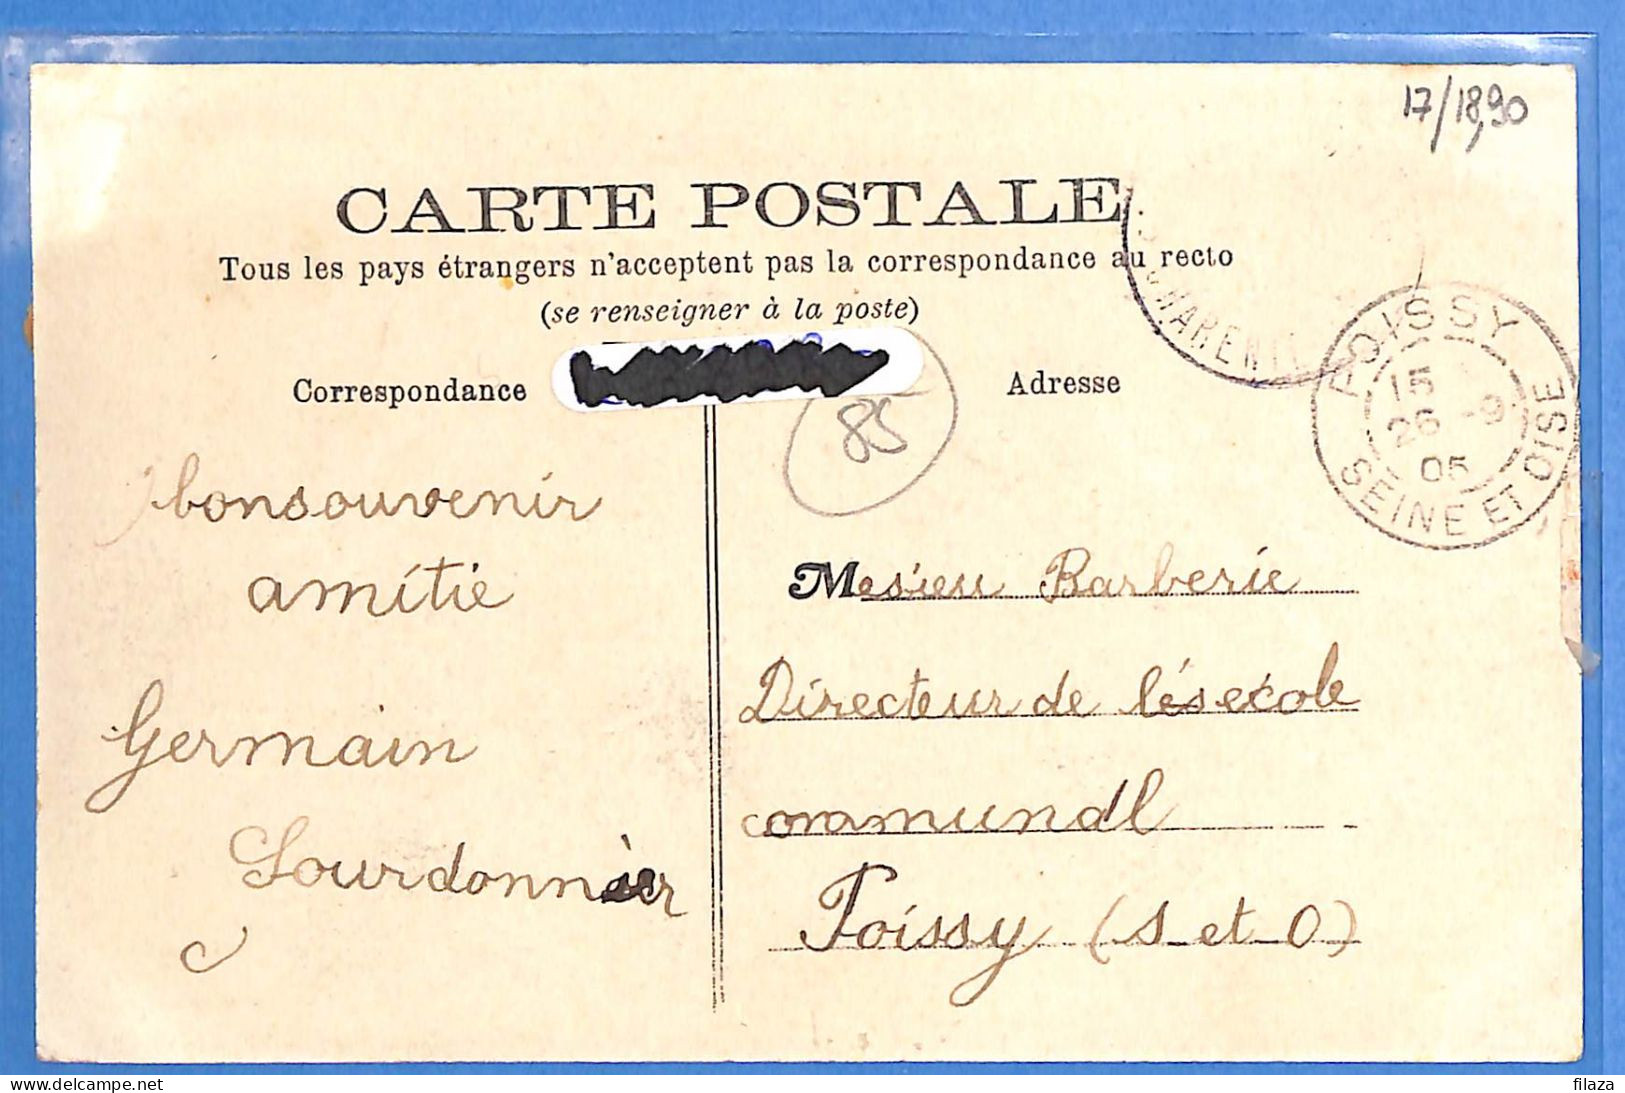 17/18,90
CARTE POSTALE
Tous les pays étrangers n'acceptent pas la correspondance au recto
(se renseigner à la poste)
Correspondance
Adresse
85
CHARENTE
POISSY
15
26 -9
05
SEINE ET OISE
bonsouvenir
amitie
Germain
Lourdonnier
Mesieu Barberie
Directeur de lésecole
communal
Poissy (S et O)
filaza